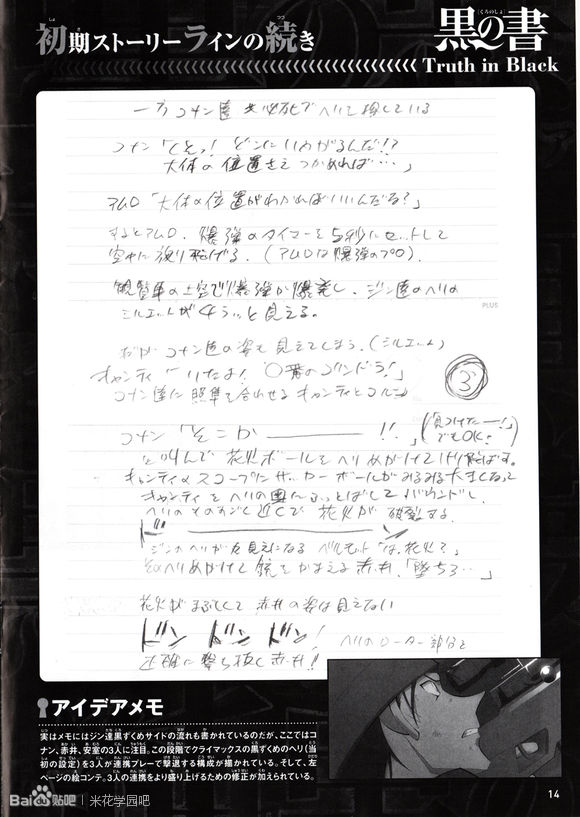 初期ストーリーラインの続き
黒の書
(くろのしょ)
Truth in Black
一方コナン達 必死でヘリを探している
コナン「くそっ! どこにいやがるんだ!?
大体の位置さえつかめれば…」
アムロ「大体の位置がわかればいいんだな?」
するとアムロ、爆弾のタイマーを5秒にセットして
空中に放り投げる。(アムロは爆弾のプロ)
観覧車の上空で爆弾が爆発し、ジン達のヘリの
シルエットがうっと見える。
PLUS
だがコナン達の姿も見えてしまう。(シルエット)
キャンティ「いたよ! ○番のゴンドラ!」
コナン達に照準を合わせるキャンティとコルン
③
コナン「そこか――――!!」(「見つけたー!」でもOK!)
と叫んで花火ボールをヘリめがけてけり飛ばす。
キャンティのスコープにサッカーボールがみるみる大きくなって
キャンティをヘリの奥にふっとばしてバウンドし
ヘリのものすごく近くで花火が破裂する。
ド―――――ン
ジンのヘリが丸見えになる ベルモット「は、花火?」
そのヘリめがけて銃をかまえる赤井「墜ちろ…」
花火がまぶしくて赤井の姿は見えない
ドン ドン ドン!
ヘリのローター部分を
正確に撃ち抜く赤井!!
アイデアメモ
実はメモにはジン達黒ずくめサイドの流れも書かれているのだが、ここではコ
ナン、赤井、安室の3人に注目。この段階でクライマックスの黒ずくめのヘリ(当
初の設定)を3人が連携プレーで撃退する構成が描かれている。そして、左
ページの絵コンテで、3人の連携をより盛り上げるための修正が加えられている。
14
Bai 贴吧 | 米花学园吧